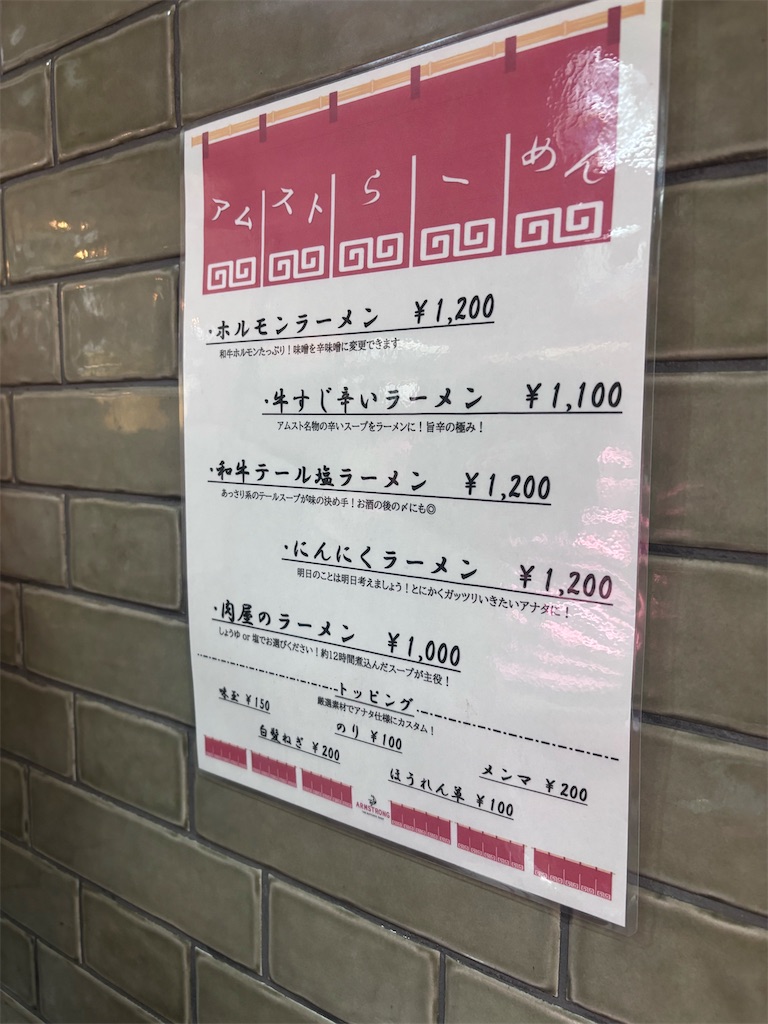 アムストらーめん
・ホルモンラーメン ￥1,200
和牛ホルモンたっぷり！味噌を辛味噌に変更できます
・牛すじ辛いラーメン ￥1,100
アムスト名物の辛いスープをラーメンに！旨辛の極み！
・和牛テール塩ラーメン ￥1,200
あっさり系のテールスープが味の決め手！お酒の後の〆にも◎
・にんにくラーメン ￥1,200
明日のことは明日考えましょう！とにかくガッツリいきたいアナタに！
・肉屋のラーメン ￥1,000
しょうゆ or 塩でお選びください！約12時間煮込んだスープが主役！
トッピング
厳選素材でアナタ仕様にカスタム！
味玉 ￥150
のり ￥100
メンマ ￥200
白髪ねぎ ￥200
ほうれん草 ￥100
ARMSTRONG